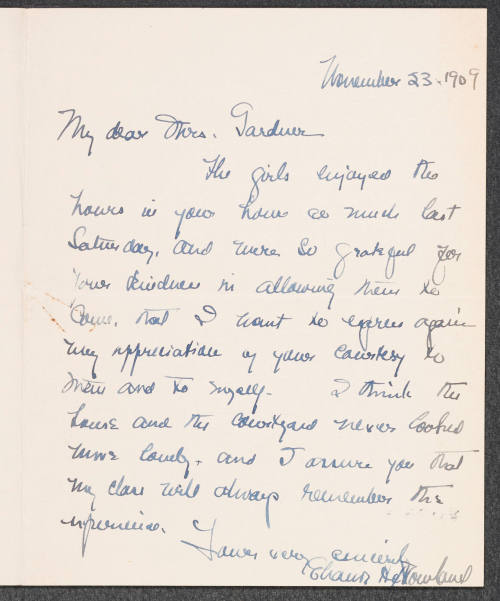 November 23. 1909
My dear Mrs. Gardner
The girls enjoyed the
hours in your house so much last
Saturday, and were so grateful for
your kindness in allowing them to
come, that I want to express again
my appreciation of your courtesy to
them and to myself. I think the
house and the courtyard never looked
more lovely, and I assure you that
my class will always remember the
experience.
Yours very sincerely
Howland